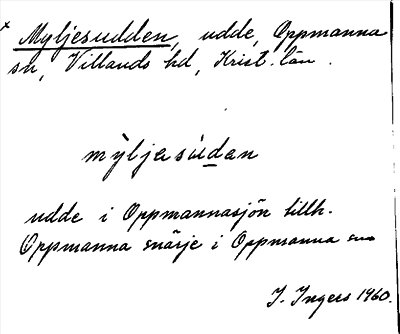 x Myljesudden, udde, Oppmanna
sn, Villands hd, Krist. län.
mỳljesùdan
udde i Oppmannasjön tillh.
Oppmanna snärje i Oppmanna sn
I. Ingers 1960.